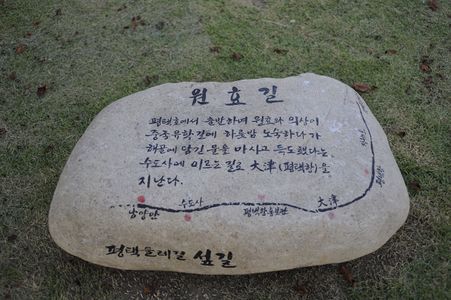 원효길
평택호에서 출발하여 원효와 의상이
중국유학길에 하룻밤 노숙하다가
해골에 담긴 물을 마시고 득도했다는
수도사에 이르는 길로 大津(평택항)을
지난다.
남양만
수도사
평택항홍보관
大津
평택호
평택둘레길 섶길